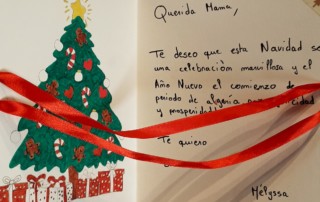 Querida Mama,
Te deseo que esta Navidad se
una celebración maravillosa y el
Año Nuevo el comienzo de
periodo de alegría
y prosperidad
Te quiero
Mélyssa